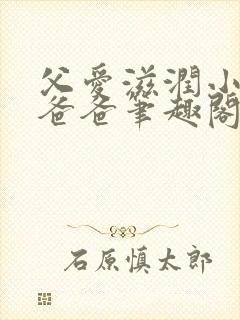 父爱滋潤小
爸爸筆趣閣
石原慎太郎